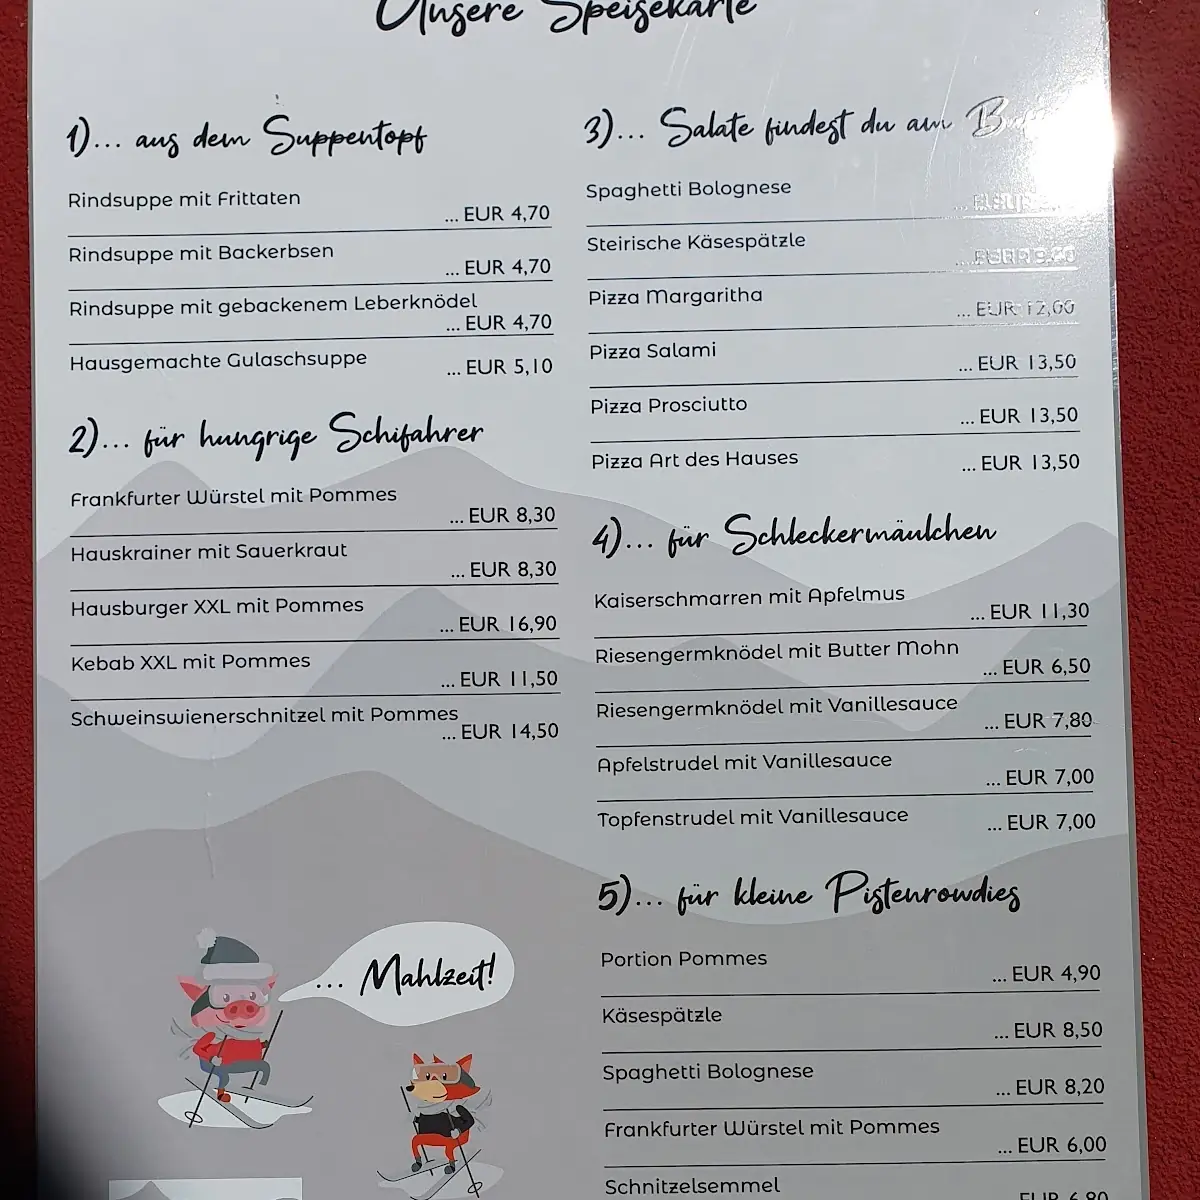 Unsere Speisekarte
1)... aus dem Suppentopf
Rindsuppe mit Frittaten
... EUR 4,70
Rindsuppe mit Backerbsen
... EUR 4,70
Rindsuppe mit gebackenem Leberknödel
... EUR 4,70
Hausgemachte Gulaschsuppe
... EUR 5,10
2)... für hungrige Schifahrer
Frankfurter Würstel mit Pommes
... EUR 8,30
Hauskrainer mit Sauerkraut
... EUR 8,30
Hausburger XXL mit Pommes
... EUR 16,90
Kebab XXL mit Pommes
... EUR 11,50
Schweinswienerschnitzel mit Pommes
... EUR 14,50
... Mahlzeit!
3)... Salate findest du am
Spaghetti Bolognese
... EUR
Steirische Käsespätzle
... EUR
Pizza Margaritha
... EUR 12,00
Pizza Salami
... EUR 13,50
Pizza Prosciutto
... EUR 13,50
Pizza Art des Hauses
... EUR 13,50
4)... für Schleckermäulchen
Kaiserschmarren mit Apfelmus
... EUR 11,30
Riesengermknödel mit Butter Mohn
... EUR 6,50
Riesengermknödel mit Vanillesauce
... EUR 7,80
Apfelstrudel mit Vanillesauce
... EUR 7,00
Topfenstrudel mit Vanillesauce
... EUR 7,00
5)... für kleine Pistenrowdies
Portion Pommes
... EUR 4,90
Käsespätzle
... EUR 8,50
Spaghetti Bolognese
... EUR 8,20
Frankfurter Würstel mit Pommes
... EUR 6,00
Schnitzelsemmel
EUR 6,80